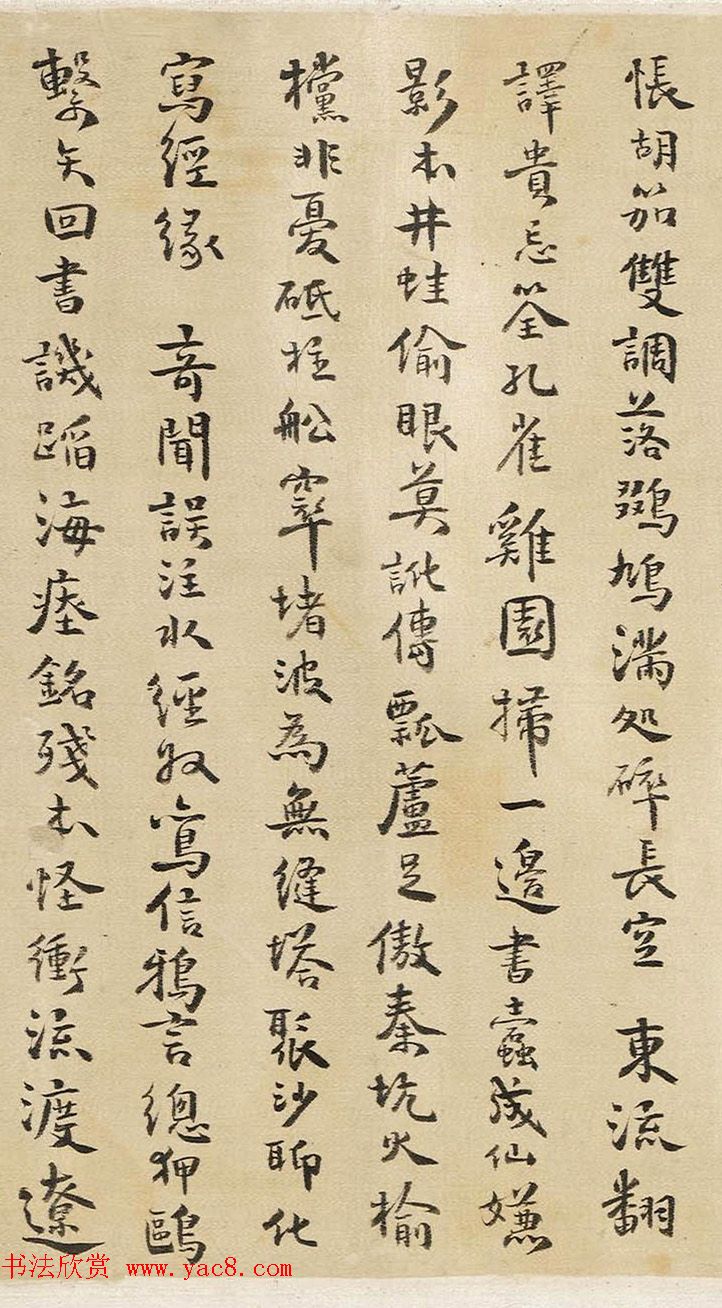 悵胡笳雙調落鵽鳩滿処碎長空 東流翻
譯貴忘筌孔雀雞園掃一邊書蠹成仙嫌
影本井蛙偷眼莫訛傳瓢蘆足傲秦坑火榆
欓非憂砥柱舩窣堵波為無縫塔聚沙聊化
寫經緣 奇聞誤注水經信鴉言總狎鷗
繫矢回書譏蹈海瘞銘殘本怪衝流渡遼
书法欣赏 www.yac8.com